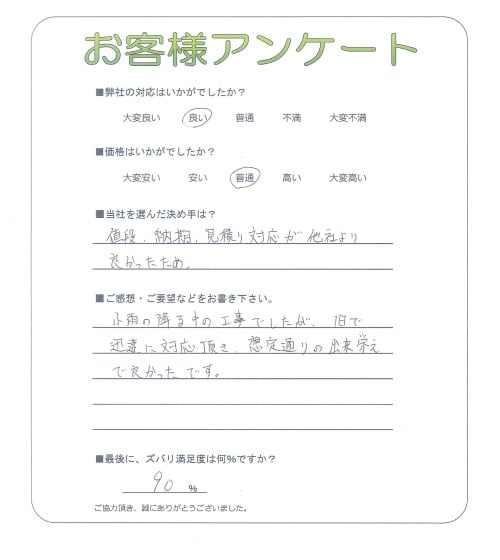 お客様アンケート
■弊社の対応はいかがでしたか？
大変良い 良い 普通 不満 大変不満
■価格はいかがでしたか？
大変安い 安い 普通 高い 大変高い
■当社を選んだ決め手は？
値段、納期、見積り対応が他社より
良かったため。
■ご感想・ご要望などをお書き下さい。
小雨の降る中の工事でしたが、1日で
迅速に対応頂き、想定通りの出来栄え
で良かったです。
■最後に、ズバリ満足度は何％ですか？
90 %
ご協力頂き、誠にありがとうございました。